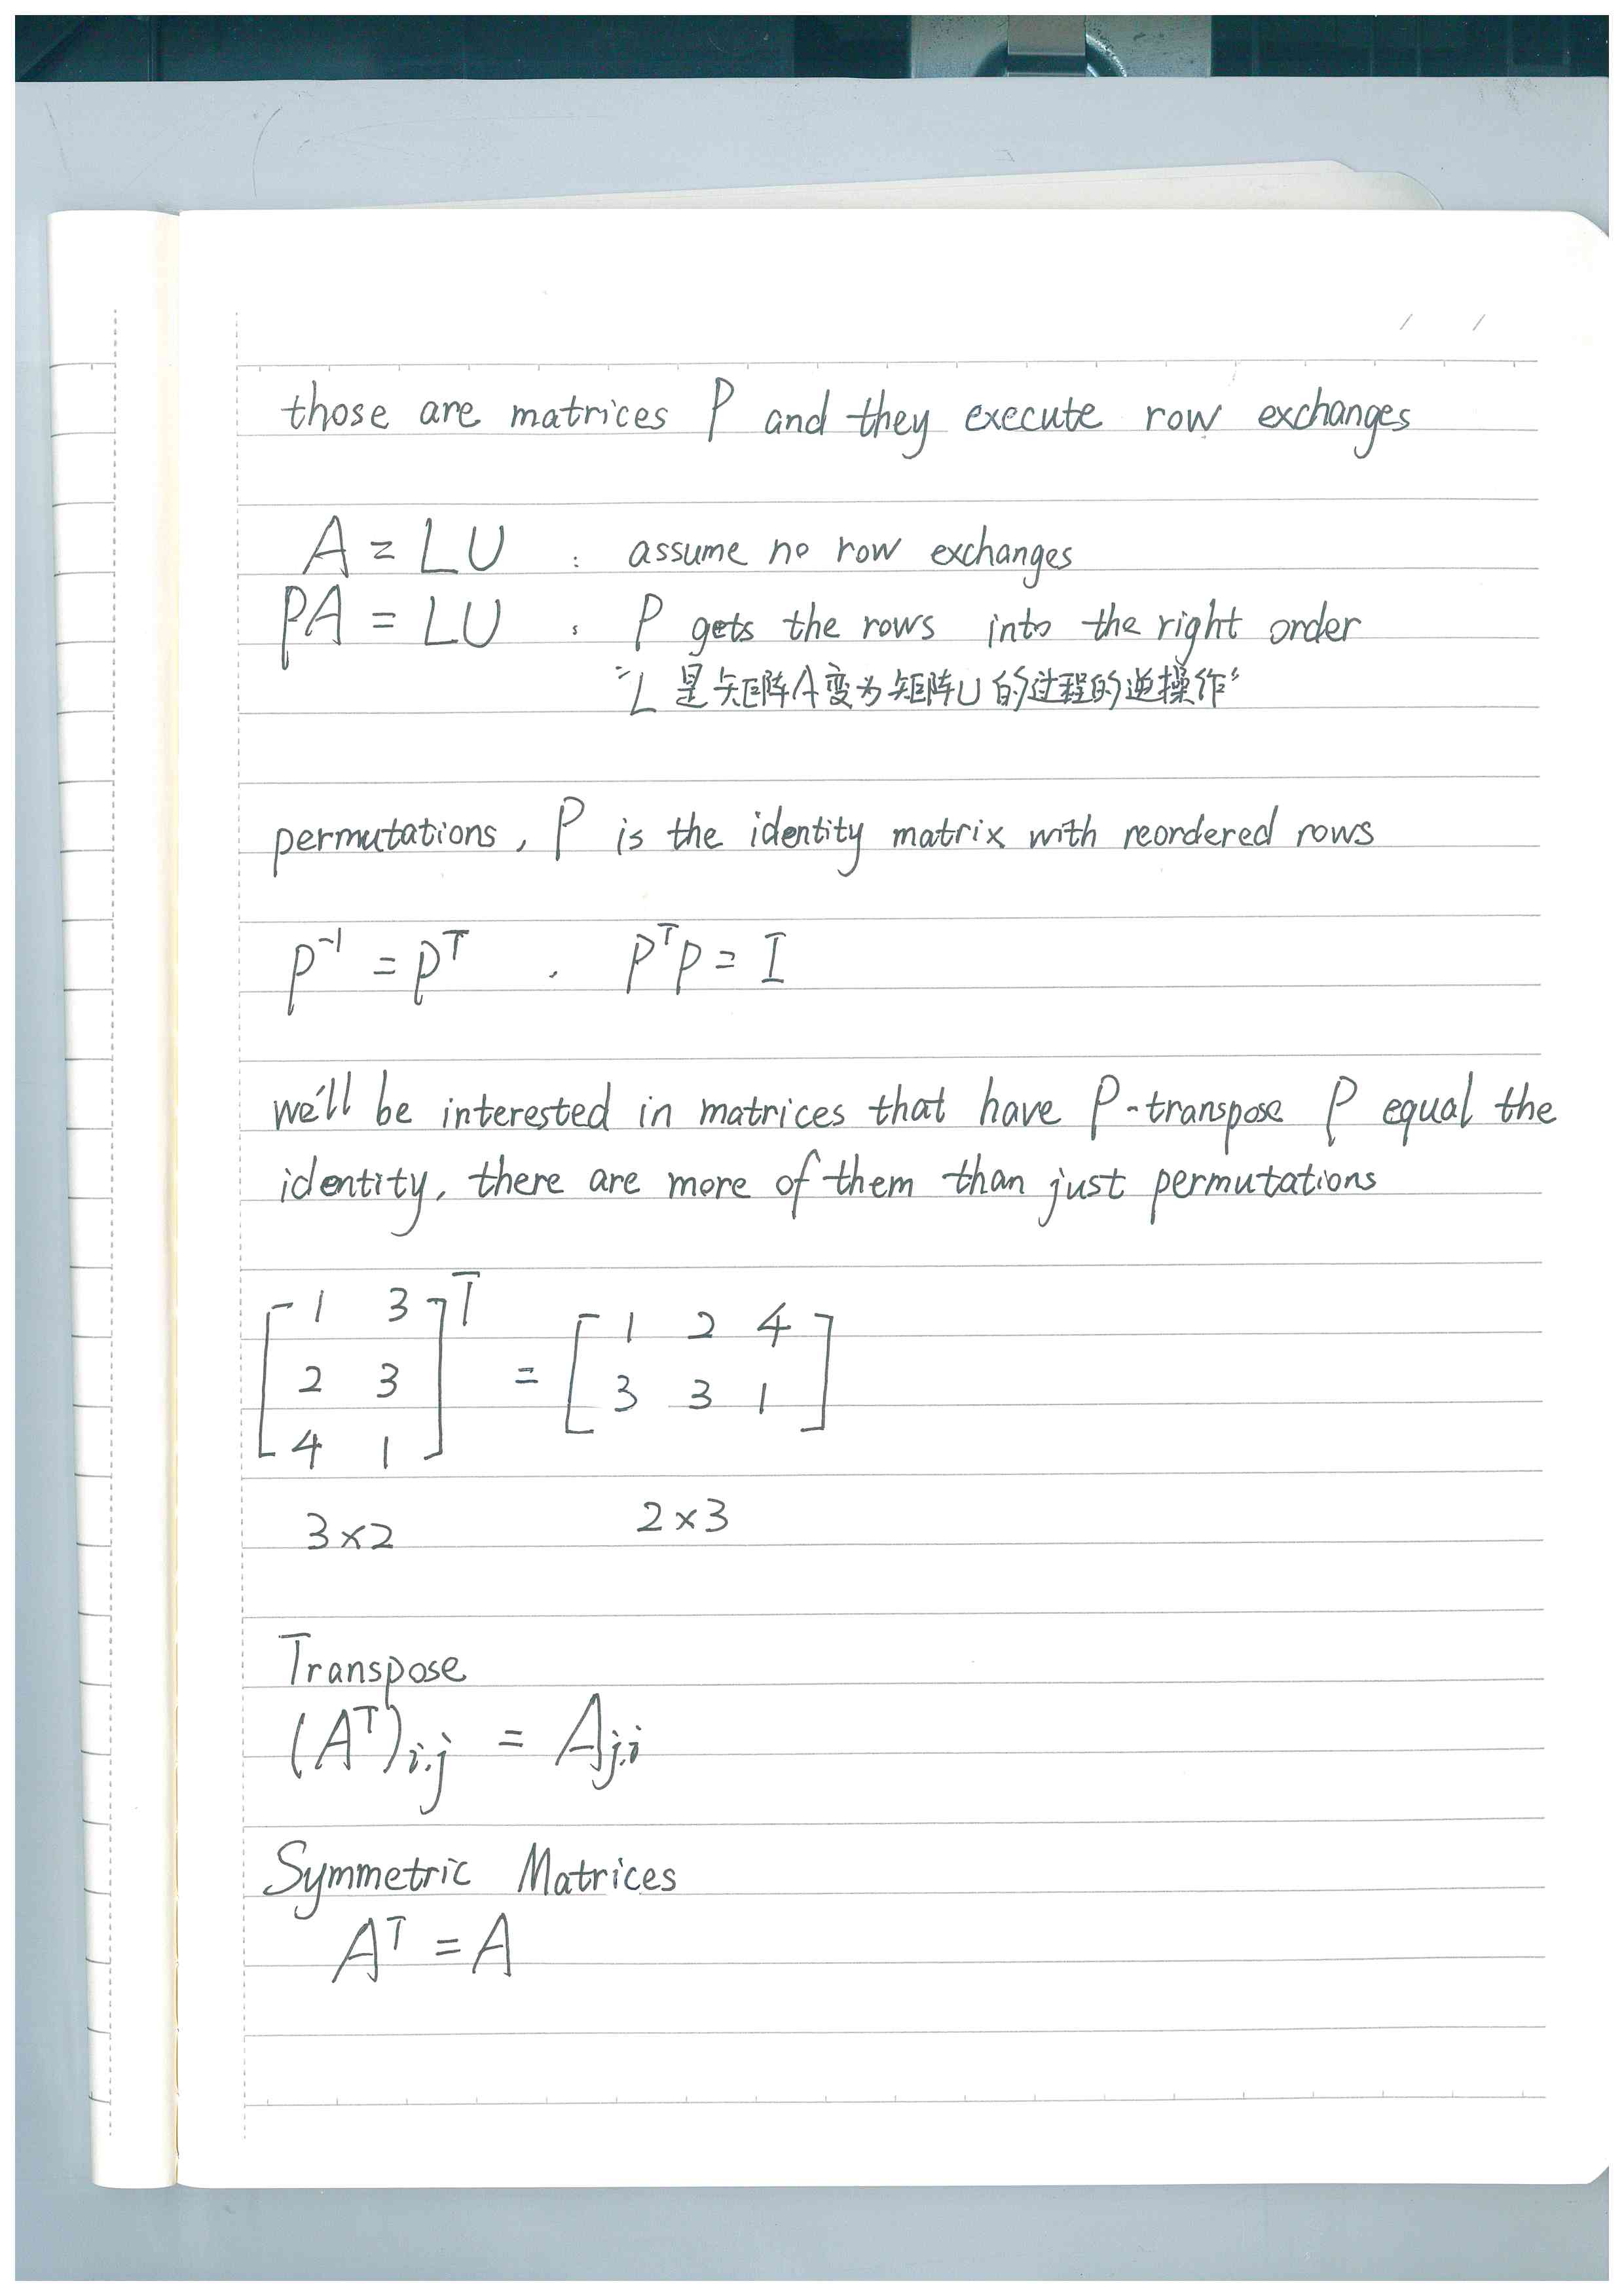 those are matrices P and they execute row exchanges
A = LU : assume no row exchanges
PA = LU : P gets the rows into the right order
"L 是矩阵A变为矩阵U的过程的逆操作"
permutations, P is the identity matrix with reordered rows
P⁻¹ = Pᵀ , PᵀP = I
we'll be interested in matrices that have P-transpose P equal the
identity, there are more of them than just permutations
[1 3; 2 3; 4 1]ᵀ = [1 2 4; 3 3 1]
3×2 2×3
Transpose
(Aᵀ)i,j = Aj,i
Symmetric Matrices
Aᵀ = A